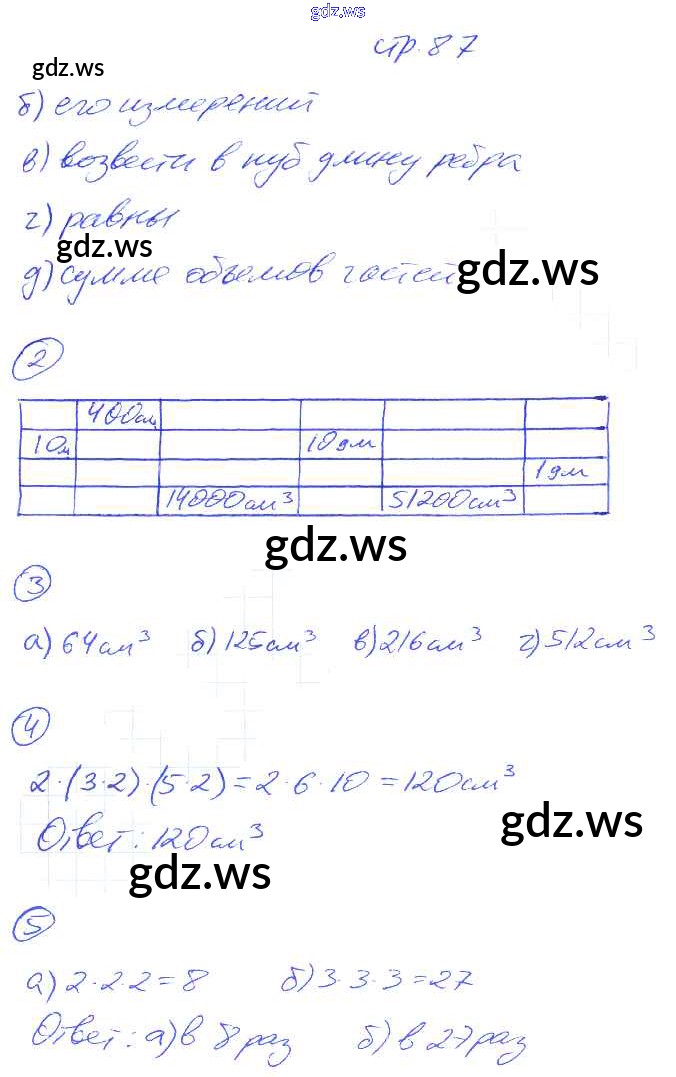 gdz.ws
стр. 87
gdz.ws
б) его измерений
в) возвести в куб длину ребра
г) равны
gdz.ws
д) сумме объемов частей
gdz.ws
2
400см
10м 10дм
1дм
14000см³ 51200см³
gdz.ws
3
а) 64см³ б) 125см³ в) 216см³ г) 512см³
4
2·(3·2)·(5·2)=2·6·10=120см³
gdz.ws
Ответ: 120см³
gdz.ws
5
а) 2·2·2=8 б) 3·3·3=27
Ответ: а) в 8 раз б) в 27 раз